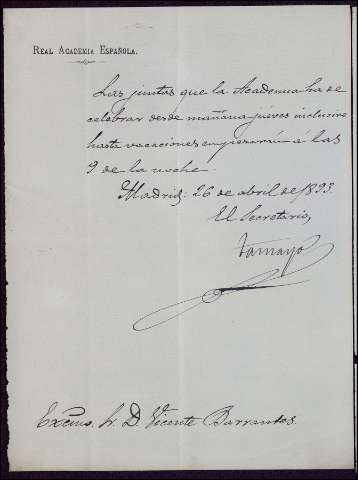 REAL ACADEMIA ESPAÑOLA.
Las juntas que la Academia ha de
celebrar desde mañana jueves inclusive
hasta vacaciones empezarán á las
9 de la noche.
Madrid: 26 de abril de 1893.
El Secretario,
Tamayo
Excmo. Sr. D. Vicente Barrantes.